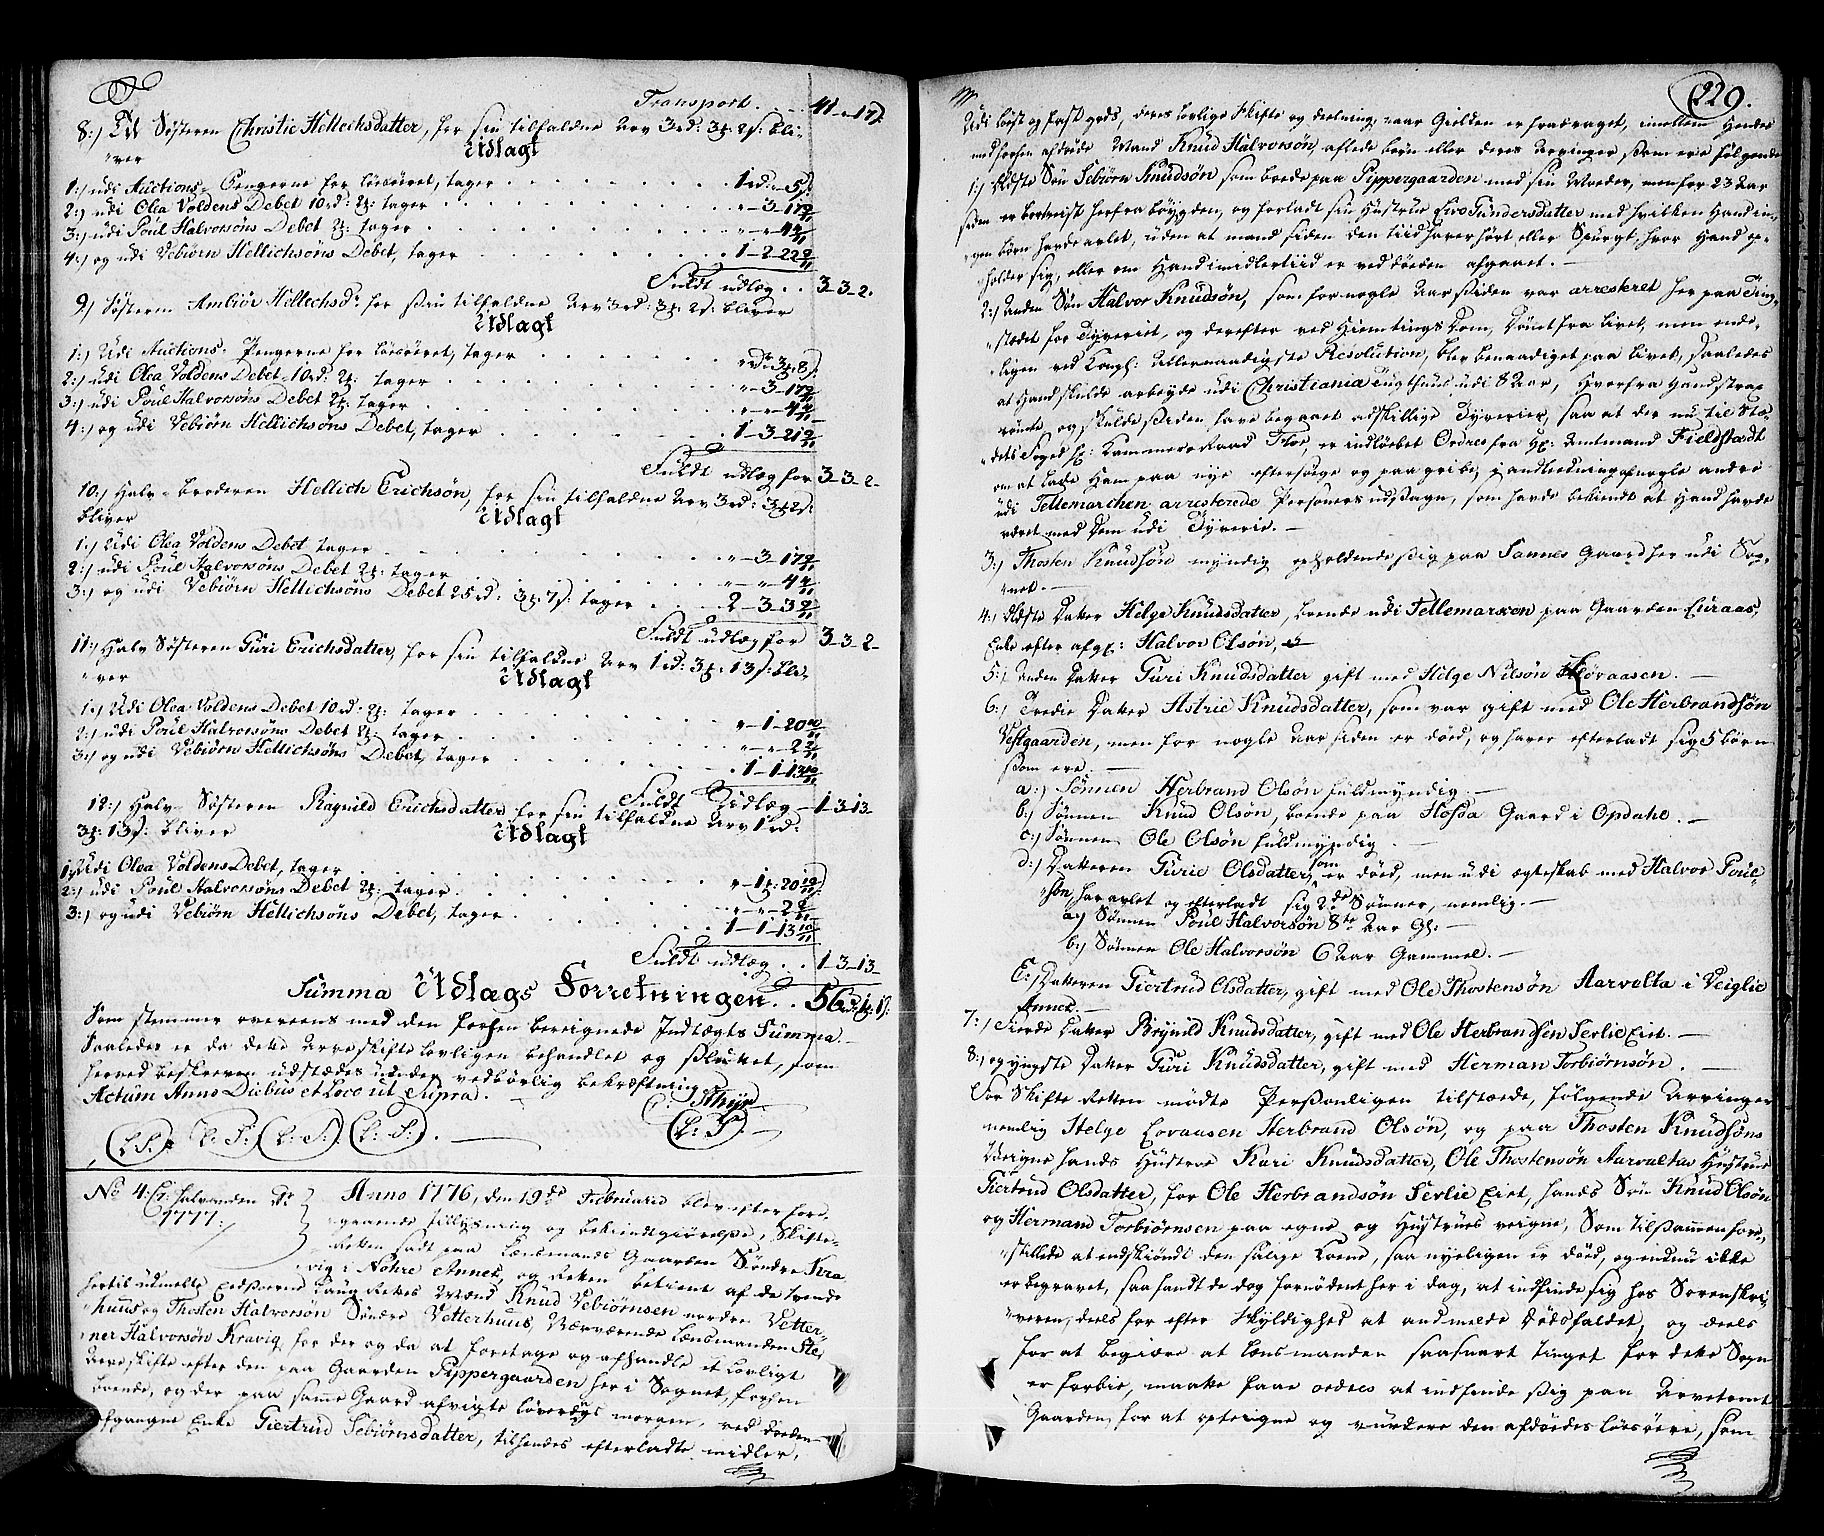 Transport. . . . 41 - " - 17 s.
8:) Til Søsteren Christie Hellechsdatter, for sin tilfaldne Arv 3rd: 3h: 2s: bli-
"ver
Udlagt
1:) udi Auctions-Pengerne for Løsøret, tager . . . 1rd: " - 5 s.
2:) udi Olea Voldens Debet 10rd: 2h: tager . . . " - 3 - 17 9/11
3:) udi Poul Halvorsøns Debet 2h: tager . . . " - " - 4 4/11
4:) og udi Vebiørn Hellichsøns Debet, tager . . . 1 - 2 - 22 9/11
Fuldt udlæg . . 3 - 3 - 2.
9:) Søsteren Ambiør Hellechsd: for sin tilfaldne Arv 3rd: 3h: 2s: bliver
Udlagt
1:) Udi Auctions-Pengerne for Løsøret, tager . . . " rd: 3h: 8 s:
2:) udi Olea Voldens Debet 10rd: 2h: tager . . . " - 3 - 17 9/11
3:) udi Poul Halvorsøns Debet 2h: tager . . . " - " - 4 4/11
4:) og udi Vebiørn Hellichsøns Debet, tager . . . 1 - 3 - 21 9/11
Fuldt udlæg for 3 - 3 - 2 -
10:) Halv-broderen Hellich Erichsøn, for sin tilfaldne Arv 3rd: 3h: 2s:
bliver
Udlagt
1:) Udi Olea Voldens Debet tager . . . " - 3 - 17 9/11
2:) udi Poul Halvorsøns Debet 2h: tager . . . " - " - 4 4/11
3:) og udi Vebiørn Hellichsøns Debet 25rd: 3h: 7s: tager . . . 2 - 3 - 3 9/11
Fuldt udlæg for 3 - 3 - 2 -
11:) Halv Søsteren Guri Erichsdatter, for sin tilfaldne Arv 1rd: 3h: 13s: bli-
"ver
Udlagt
1:) Udi Olea Voldens Debet 10rd: 2h: tager . . . " - 1 - 20 10/11
2:) udi Poul Halvorsøns Debet 2h: tager . . . " - " - 2 2/11
3:) og udi Vebiørn Hellichsøns Debet, tager . . . 1 - 1 - 13 10/11
Fuldt Udlæg - 1 - 3 - 13 -
12:) Halv Søsteren Ragnild Erichsdatter for sin tilfaldne Arv 1rd:
3h: 13s: bliver
Udlagt
1:) Udi Olea Voldens Debet, tager . . . " - 1h: 20 10/11
2:) udi Poul Halvorsøns Debet 2h: tager . . . " - " - 2 2/11
3:) og udi Vebiørn Hellichsøns Debet, tager . . . 1 - 1 - 13 10/11
Fuldt udlæg . . 1 - 3 - 13 -
Summa Udlags Forretningen. . . 56rd: 1h: 1s:
Som stemmer overeens med den forhen beregnede Indtægts Summa.
Saaledes er da dette Arveskifte lovligen behandlet og sluttet, som
herved beskreven udstædes under vedbørlig bekræftning
Actum Anno Diebus et Loco ut Supra.
(L:S:) (L:S:) (L:S:) (L:S:) (L:S)
No 4: 
1777:
Anno 1776, den 19de Februarii blev efter fore-
"gaaende tillysning og bekiendtgiørelse, Skifte-
Retten sadt paa Lensmands Gaarden Søndre Kra
vig i Nohre Annex, og Retten betient af de tvende
hertil udmelte Eedsorne Laug-Rettes Mænd Knud Vebiørnsen nordre Vetter-
"huus og Thosten Halvorsøn Søndre Vetterhuus, Nærværende Lensmanden Ste-
ner Halvorsøn Kravig, for der og da at foretage og afhandle et Lovligt
Arveskifte efter den paa Gaarden Pippergaarden her i Sognet, forhen
boende, og der paa samme Gaard afvigte løverdags morgen, ved døden
afgangne Enke Giertrud Sebiørnsdatter, tilhendes efterladte midler,
229.
Udi løst og fast gods, deres Lovlige skifte og deeling, naar Gielden er fradraget, imellem hendes
med forhen afdøde Mand Knud Halvorsøn, aflede børn eller deres Arvinger som ere følgende
1:) Eldste Søn Sebiørn Knudsøn som boede paa Pippergaarden med sin Moeder, men for 23 Aar
siden er bortreist herfra bøygden, og forladt sin Hustrue Livo Gundersdatter med hvilken Hand in-
"gen børn havde avlet, uden at mand siden den tiid haver hørt eller Spurgt, hvor Hand op-
"holder sig, eller om Hand imidlertiid er ved døden afgaaet. -
2:) Anden Søn Halvor Knudsøn, som for nogle Aar siden var arresteret her paa Ting-
"stædet for Tyverie, og derefter ved Hiemtings Dom, Dømt fra Livet, men ende-
"ligen ved Kongl: Allernaadigste Resolution, blev benaadiget paa Livet, saaledes
at Hand skulde arbeyde udi Christiania Tugthuus udi 8 Aar, Hvorfra Hand strax
rømte, og skulde siden have begaaet adskillige Tyverier, saa at der nu til Sta-
"dets Foged Hr: Kammerraad Floe, er indløbet Ordres fra Hr: Amtmand Fieldstædt
om at lade Ham paa nye eftersøge og paagribe, i andledning af nogle andre
udi Tellemarchen arresterede Personers udsagn, som havde bekiendt at Hand havde
været med Dem udi Tyverie. -
3:) Thosten Knudsøn myndig opholdende sig paa Sannes Gaard her udi Sog-
"net. -
4:) Eldste Datter Helge Knudsdatter, boende udi Tellemarxen paa Gaarden Luraas,
Enke efter afg: Halvor Olsøn,
5:) Anden Datter Guri Knudsdatter gift med Helge Nilsøn Høvaasen. -
6:) Tredie Datter Astrie Knudsdatter, som var gift med Ole Herbrandsøn
Vestgaarden, men for nogle Aar siden er død, og haver efterladt sig 5 børn
som ere. -
a:) Sønnen Herbrand Olsøn fuldmyndig. -
b:) Sønnen Knud Olsøn, boende paa Hofda Gaard i Opdahl. -
c:) Sønnen Ole Olsøn fuldmyndig. -
d:) Datteren Guri Olsdatter, som er død, men udi ægteskab med Halvor Poul-
"søn, har avlet og efterladt sig 2de Sønner, nemlig. -
a:) Sønnen Poul Halvorsøn 8te Aar Gl: -
b:) Sønnen Ole Halvorsøn 6 Aar Gammel. -
E:) Datteren Giertrud Olsdatter, gift med Ole Thostensøn Aarvalta i Veiglie
Annex. -
7:) Fierde Datter Brynild Knudsdatter, gift med Ole Herbrandsen Serlie Eiet. -
8:) og yngste Datter Guri Knudsdatter, gift med Herman Torbiørnsøn. -
For Skifte Retten mødte Personligen tilstæde, følgende Arvinger
nemlig Helge Lovaasen Herbrand Olsøn, og paa Thosten Knudsøns
Veigne hands Hustrue Kari Knudsdatter, Ole Thostensøn Aarvaltas Hustrue
Giertrud Olsdatter, for Ole Herbrandsøn Serlie Eiet, hands Søn Knud Olsøn
og Hermand Torbiørnsen paa egne og Hustrues veigne, Som tilsammen fore-
"stillede at endskiøndt den salige Kone, saa nyeligen er død, og endnu ikke
er begravet, saa fandt de dog fornødent her i dag, at indfinde sig hos Sorenskri-
"veren, deels for efter Skyldighed at anmelde Dødsfaldet, og deels
for at begiære at Lensmanden saasnart Tinget for dette Sogn
er forbie, maatte faae ordres at indfinde sig paa Arvetomt
Gaarden, for at opteigne og vurdere den afdødes løsøre, som